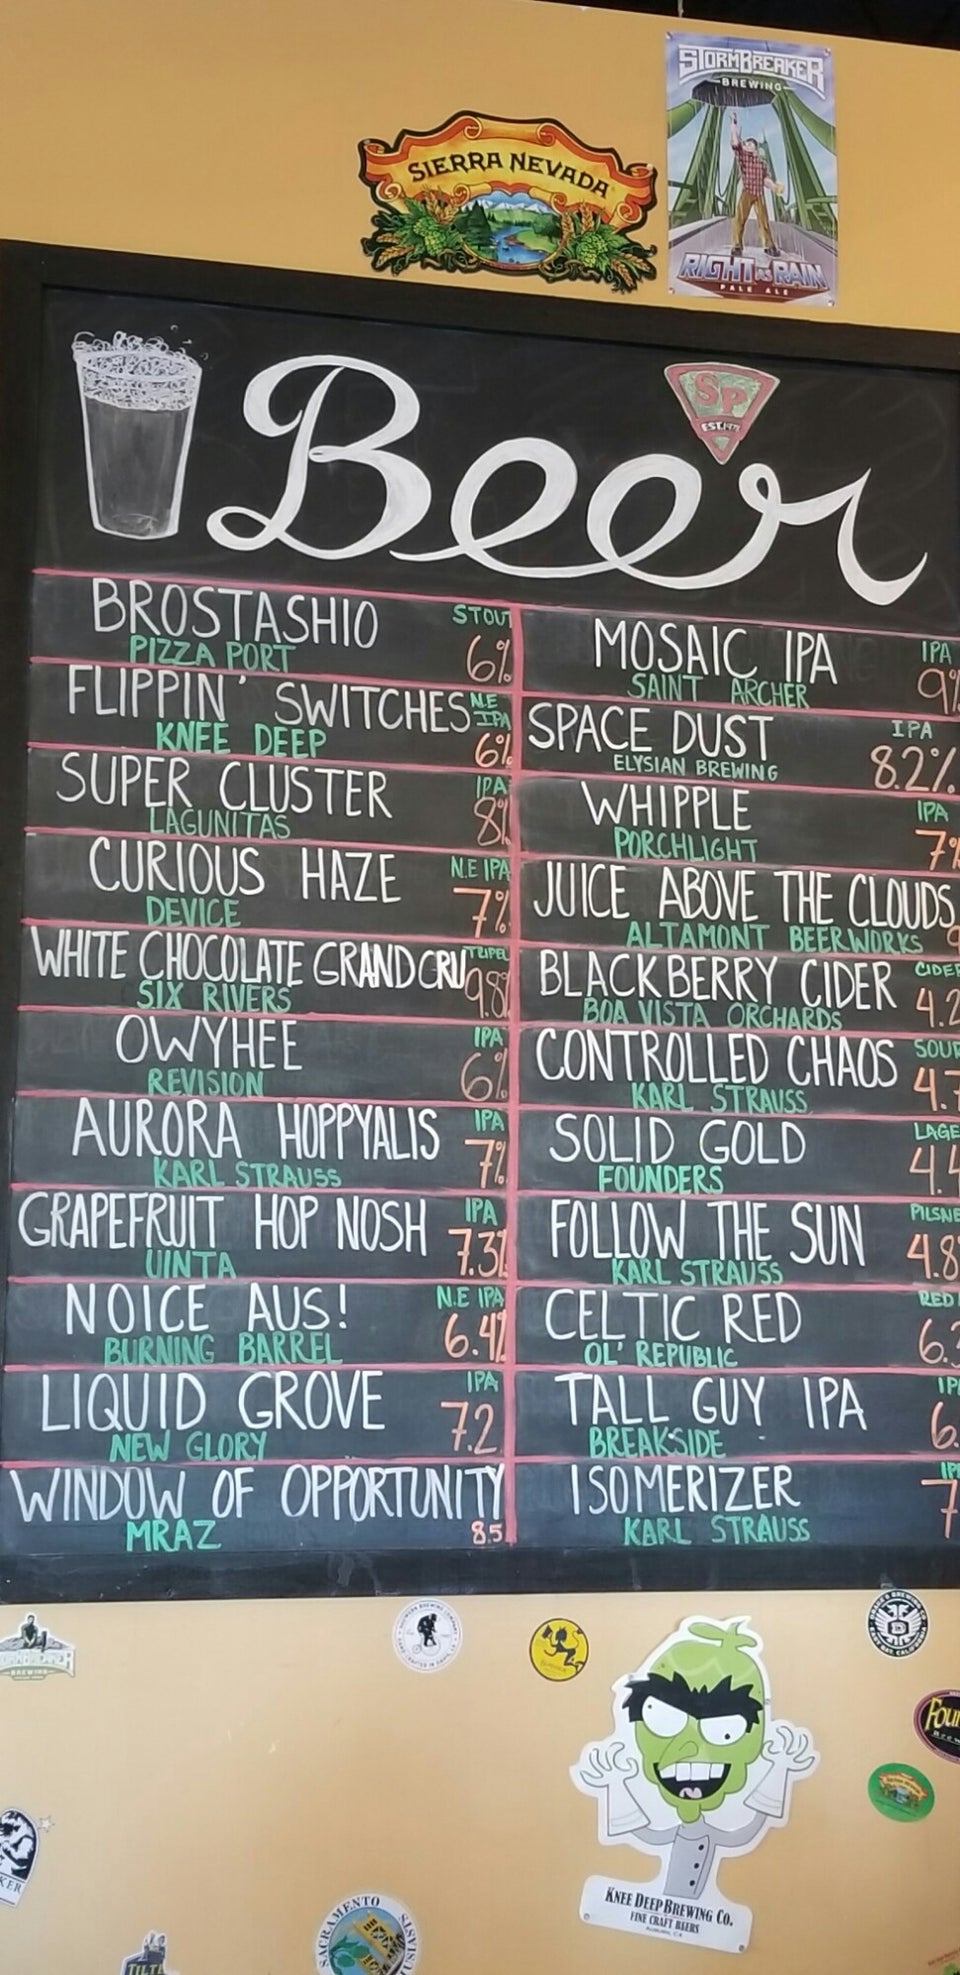 STORMBREAKER
BREWING
SIERRA NEVADA
RIGHT AS RAIN
PALE ALE
SP
EST. 1978
Beer
BROSTASHIO STOUT
PIZZA PORT 6%
FLIPPIN' SWITCHES N.E IPA
KNEE DEEP 6%
SUPER CLUSTER IPA
LAGUNITAS 8%
CURIOUS HAZE N.E IPA
DEVICE 7%
WHITE CHOCOLATE GRAND CRU
SIX RIVERS 9.8%
OWYHEE IPA
REVISION 6%
AURORA HOPPYALIS IPA
KARL STRAUSS 7%
GRAPEFRUIT HOP NOSH IPA
UINTA 7.3%
NOICE AUS! N.E IPA
BURNING BARREL 6.4%
LIQUID GROVE IPA
NEW GLORY 7.2
WINDOW OF OPPORTUNITY
MRAZ 8.5
MOSAIC IPA IPA
SAINT ARCHER 9%
SPACE DUST IPA
ELYSIAN BREWING 8.2%
WHIPPLE IPA
PORCHLIGHT 7%
JUICE ABOVE THE CLOUDS
ALTAMONT BEERWORKS 9
BLACKBERRY CIDER CIDER
BOA VISTA ORCHARDS 4.2
CONTROLLED CHAOS SOUR
KARL STRAUSS 4.7
SOLID GOLD LAGE
FOUNDERS 4.4
FOLLOW THE SUN PILSNE
KARL STRAUSS 4.8
CELTIC RED RED
OL' REPUBLIC 6.3
TALL GUY IPA IP
BREAKSIDE 6.
ISOMERIZER IP
KARL STRAUSS 7
KNEE DEEP BREWING CO.
FINE CRAFT BEERS
AUBURN, CA
SACRAMENTO
TILT